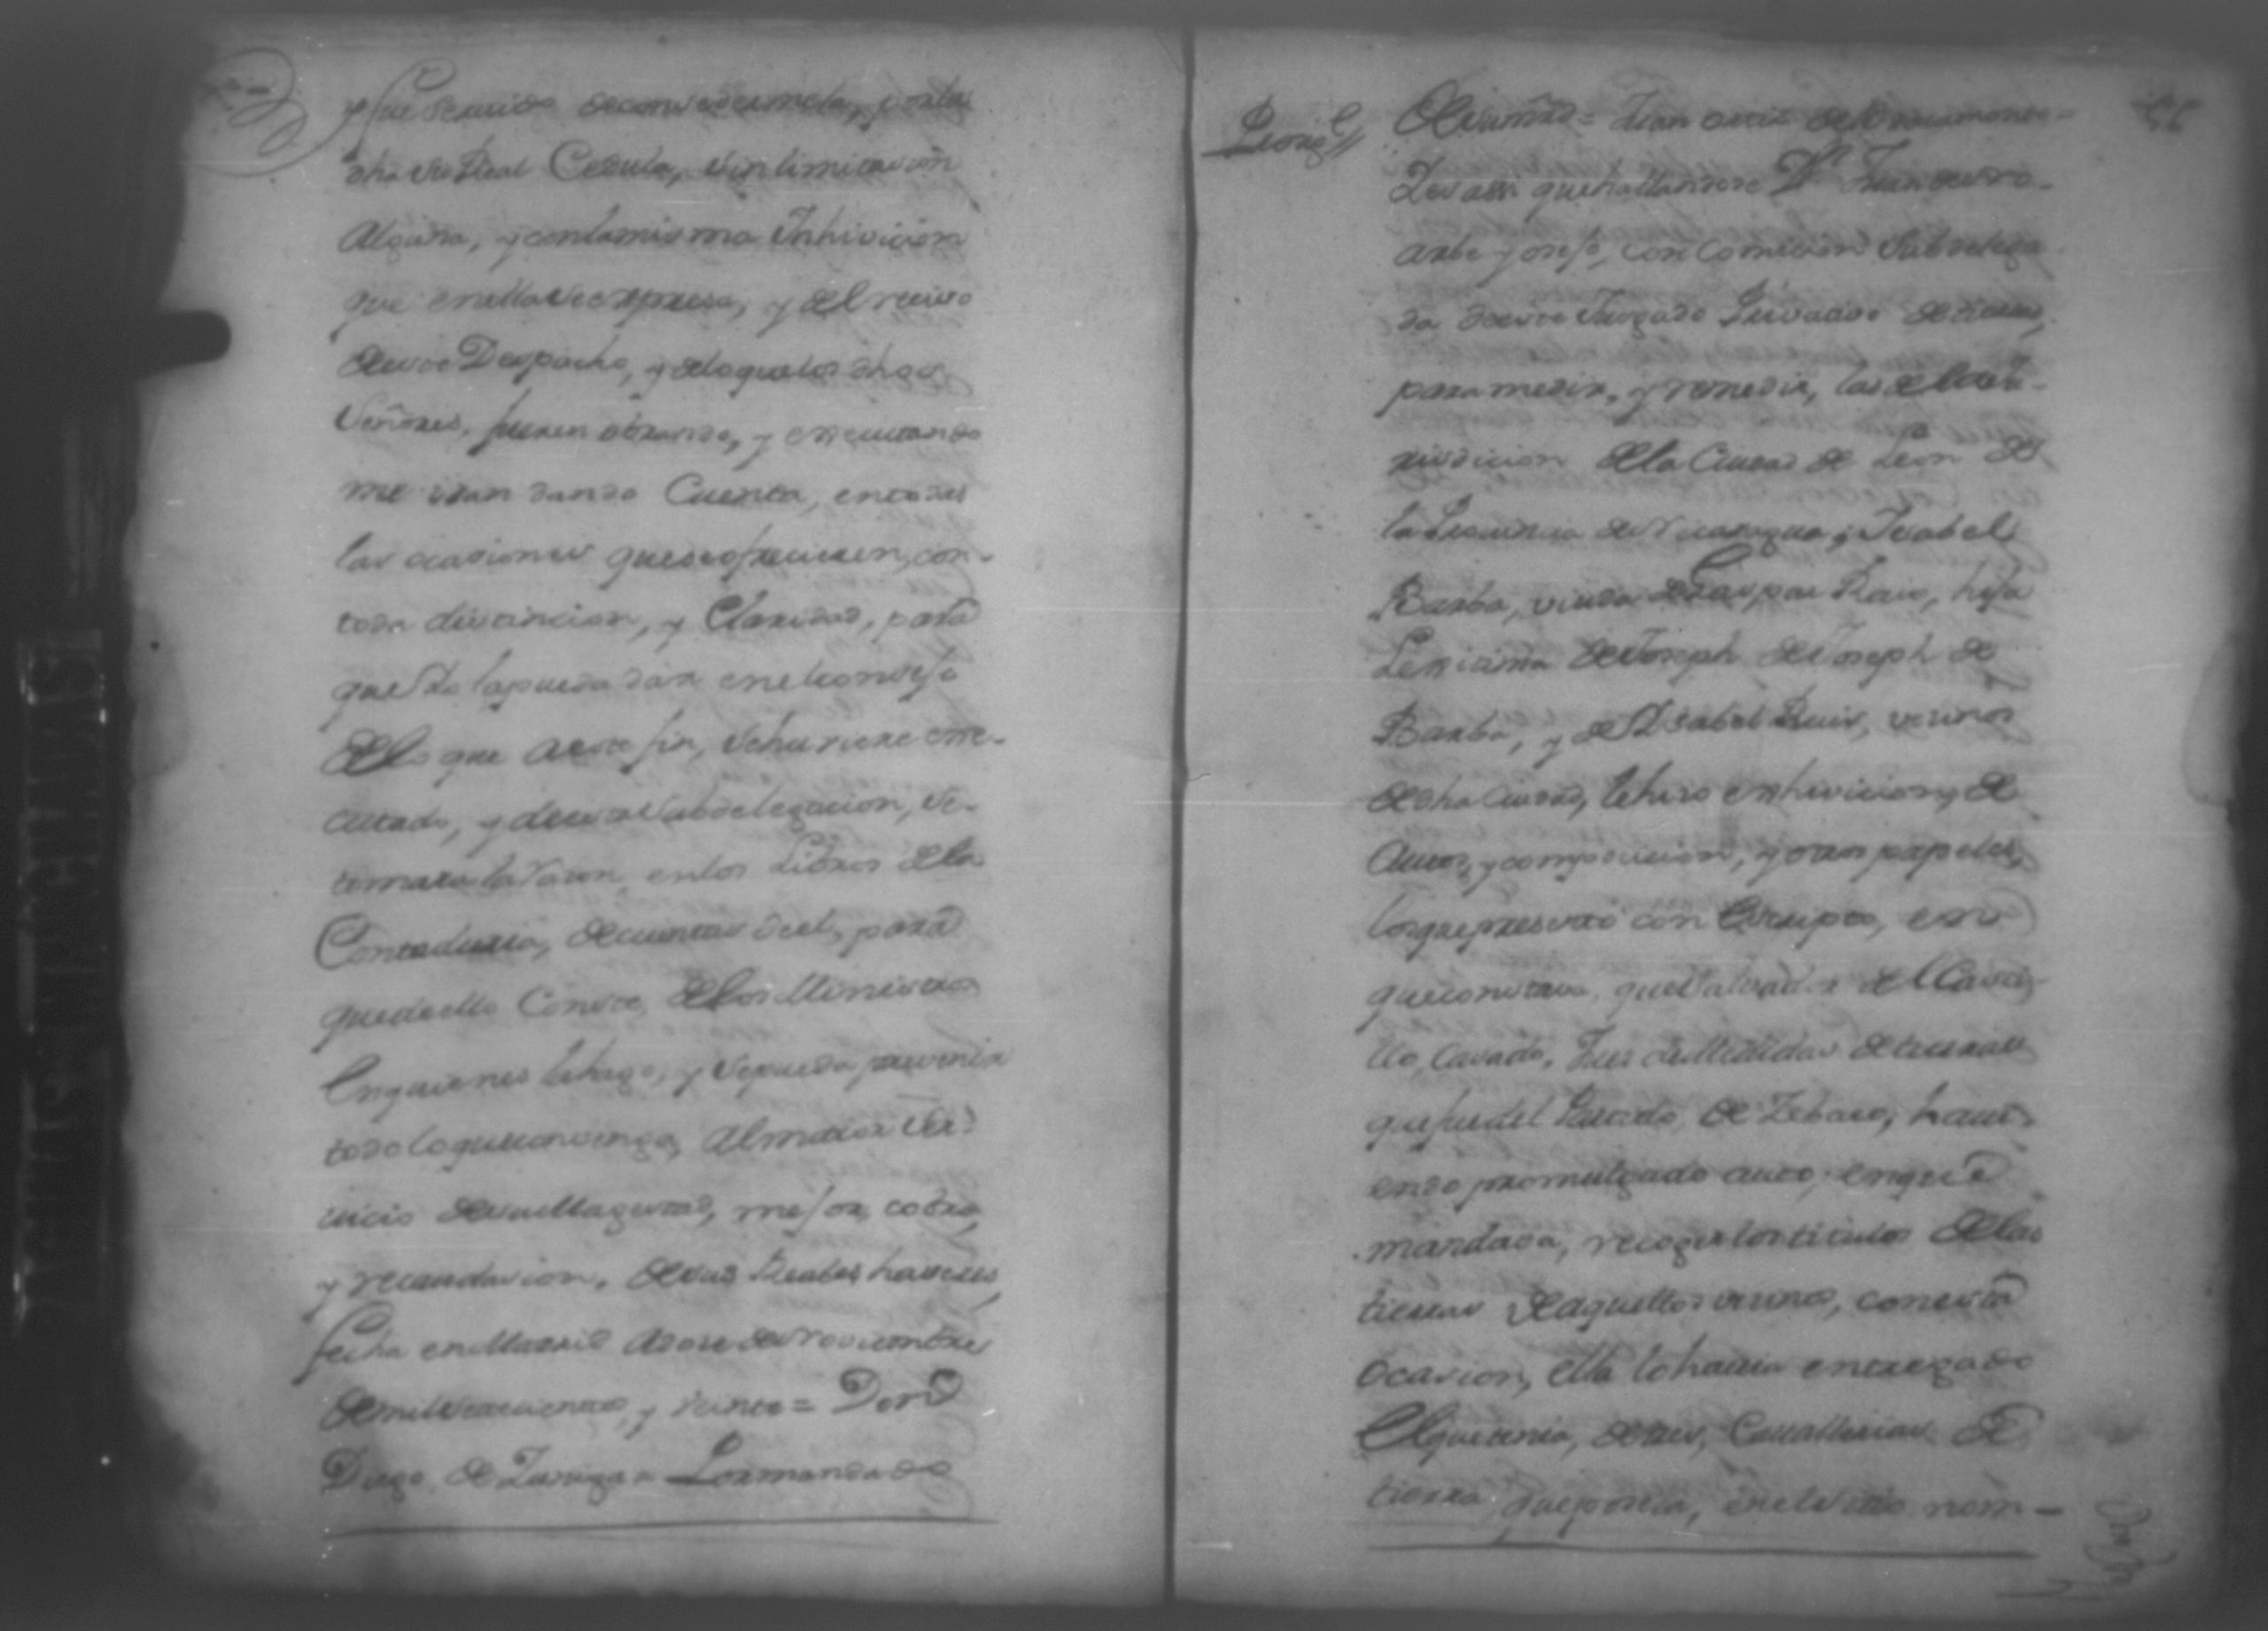 y fue servido de concederme la, por la
dha su Real Cedula, sin limitacion
Alguna, y con la misma Inhivicion
que en ella se expresa, y del recivo
de este Despacho, y de lo que los dhos
Señores, fueren obrando, y executando
me iran dando Cuenta, en todas
las ocasiones que se ofrecieren, con
toda distincion, y Claridad, para
que Yo la pueda dar en el consejo
de lo que a este fin, se huviere exe-
cutado, y de esta subdelegacion, se
tomara la rason en los Libros de la
Contaduria, de cuentas de el, para
que de ello Conste, de los Ministros
En quienes la hago, y se pueda prevenir
todo lo que convenga, Al maior Ser-
vicio de su Magestad, mejor cobro,
y recaudacion, de sus Reales haveres,
fecha en Madrid a dose de Noviembre
de mil setecientos, y veinte = Don
Diego de Zuniga = Por mandado
De su mrd = Juan Ortis de
Y es assi que hallandose Dn Juan
con Comision Subdelega-
da de este Jusgado Privativo de tierras,
para medir, y remedir, las de la ju-
risdicion de la Ciudad de Leon de
la Provincia de Nicaragua, Ysabel
Barba, viuda de Gaspar Ruis, hija
Lexitima de Joseph de Joseph de
Barba, y de Ysabel Ruis, vesinos
de dha Ciudad, le hiso exhivicion, de
Autos, y composicion, y otros papeles,
los que presentó con Escripto, en
que constava, que Salvador del Casti-
llo, Casado, Jues de Medidas de tierras
que fue del Partido de Zebaco, havi-
endo promulgado auto, en que
mandava, recoger los titulos de las
tierras de aquellos vesinos, con esta
ocasion, ella lo havia entregado
El que tenia, de tres, Cavallerias de
tierra, que poseia, en el sitio nom-